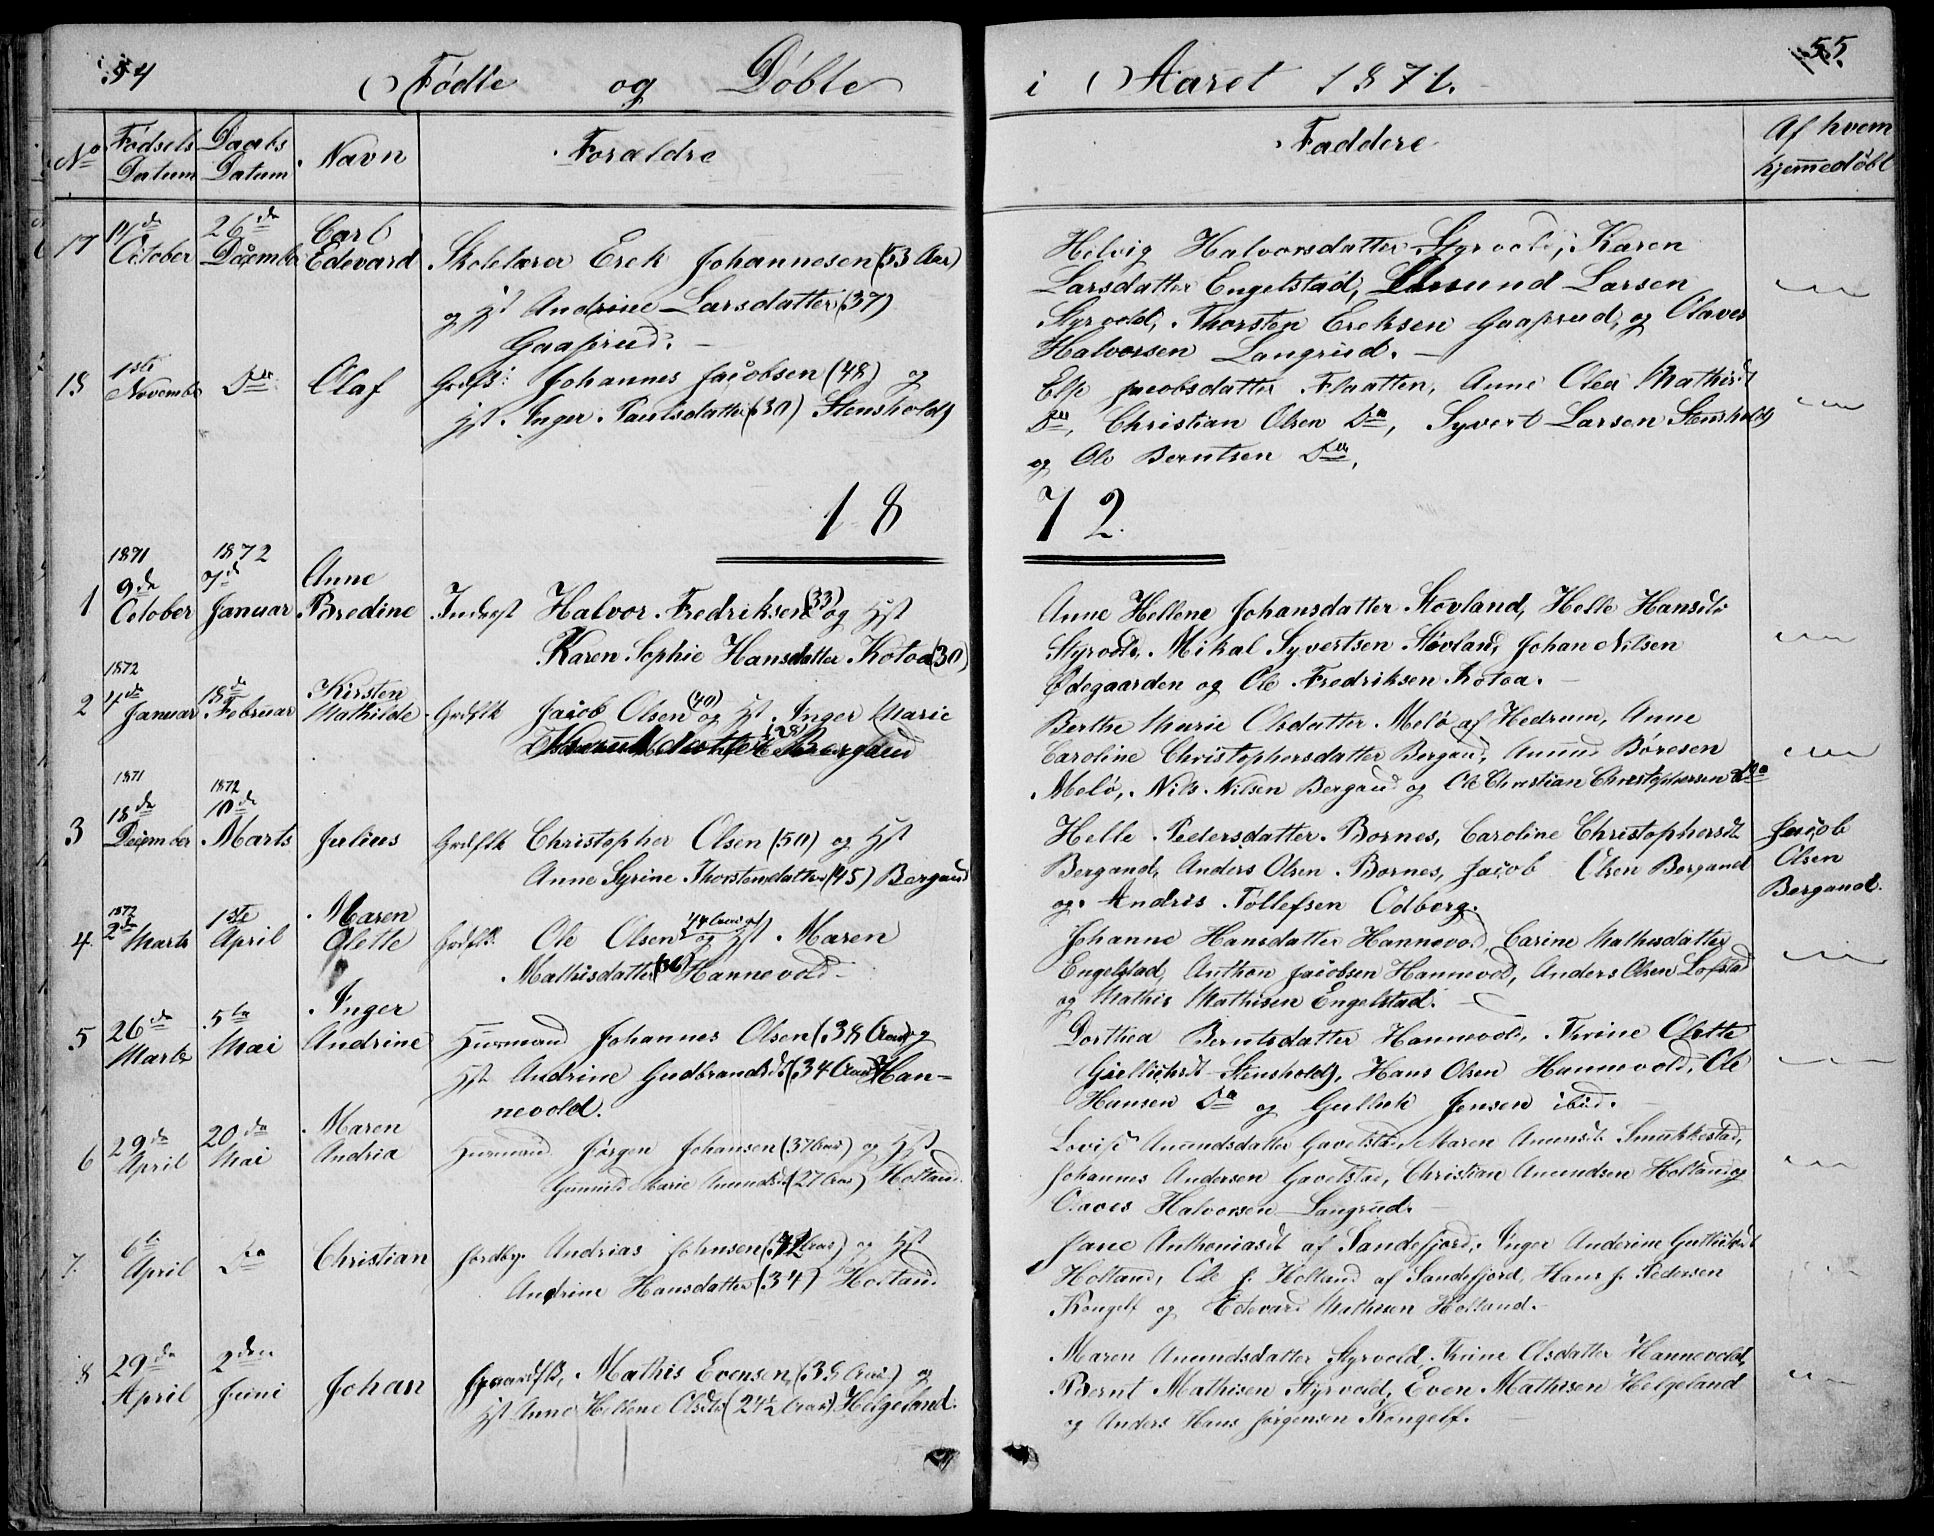 54
Födte og Döbte
i Aaret 1871.
55.
No
Fødsels Datum
Daabs Datum
Navn
Forældre
Faddere
Af hvem hjemmedöbt
17 October 26de December Carl Edevard Skolelærer Erek Johannesen (53 Aar)
og Hst Andrine Larsdatter (37)
Gaaserud.
Helvig Halvorsdatter Styrvold, Karen
Larsdatter Engelstad, Larsen
Styrvold, Thorsten Ereksen Gaaserud, og Olaves
Halvorsen Langrud.
18 1ste November Do Olaf Grdfs: Johannes Jacobsen (48) og
Hst. Inger Paulsdatter (30) Stensholdt
Else Jacobsdatter Flaatten, Anne Olea Mathisdt
Do, Christian Olsen Do, Syvert Larsen Stensholdt
og Ole Berntsen Do.
1872.
1 1871 9de October 1872 7de Januar Anne Bredine Inderst Halvor Fredriksen (33) og Hst
Karen Sophie Hansdatter Kotoa (30)
Anne Hellene Johansdatter Stovland, Helle Hansdt
Styrvold, Mikal Syvertsen Stovland, Johan Nilsen
Ødegaarden og Ole Fredriksen Kotoa.
2 1872 4de Januar 18de Februar Kirsten Mathilde Grdfslk Jacob Olsen (40) og Hst. Inger Marie
(28) Bergand
Berthe Marie Olsdatter Melö af Hedrum, Anne
Caroline Christophersdatter Bergand, Anund Böresen
Melö, Nils Nilsen Bergand og Ole Christian Christophersen Do
3 1871 18de December 1872 10de Marts Julius Grdfslk Christopher Olsen (50) og Hst
Anne Syrine Thorstensdatter (45) Bergand
Helle Pedersdatter Bornes, Caroline Christophersdt
Bergand, Anders Olsen Bornes, Jacob Olsen Bergand
og Andris Tollefsen Odberg.
Jacob Olsen Bergand.
4 1872 2de Marts 1ste April Maren Olette Grdfslk. Ole Olsen (44 Aar) og Hst Maren
Mathisdatter (36) Hannevold
Johanne Hansdatter Hannevold, Carine Mathisdatter
Engelstad, Anthon Jacobsen Hannevold, Anders Olsen Lofstad
og Mathis Mathisen Engelstad.
5 26de Marts 5te Mai Inger Andrine Husmand Johannes Olsen (38 Aar) og
Hst Andrine Gudbrandsdt (34 Aar) Han-
nevold.
Dorthea Berntsdatter Hannevold, Trine Olette
Gullichsdt Stensholdt, Hans Olsen Hannevold, Ole
Hansen Do og Gullik Jensen ibid.
6 29de April 20de Mai Maren Andria Husmand Jörgen Johansen (37 Aar) og Hst
Gunnild Marie Anundsdt (27 Aar) Holtand
Lovise Anundsdatter Gavelstad, Maren Anundsdt Smukkestad,
Johannes Andersen Gavelstad, Christian Anundsen Holtand og
Olaves Halvorsen Langrud.
7. 6te April Do Christian Jordbr. Andrias Johnsen (42 Aar) og Hst
Andrine Hansdatter (34) Holtand.
Jane Anthoniasdt af Sandefjord, Inger Anderine Gulliksdt
Holtand, Ole J. Holtand af Sandefjord, Hans J. Pedersen
Kongelf og Edevard Mathisen Holtand.
8 29de April 2den Juni Johan Gaardbr. Mathis Evensen (35 Aar) og
Hst Anne Hellene Olsdt (24½ Aar) Helgeland.
Maren Anundsdatter Styrvold, Trine Olsdatter Hannevold,
Bernt Mathisen Styrvold, Even Mathisen Helgeland
og Anders Hans Jörgensen Kongelf.